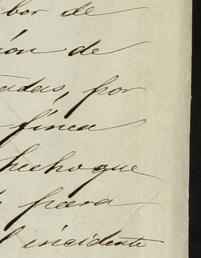 bor de
ión de
adas, por
finca
hecho que
para
l incidente